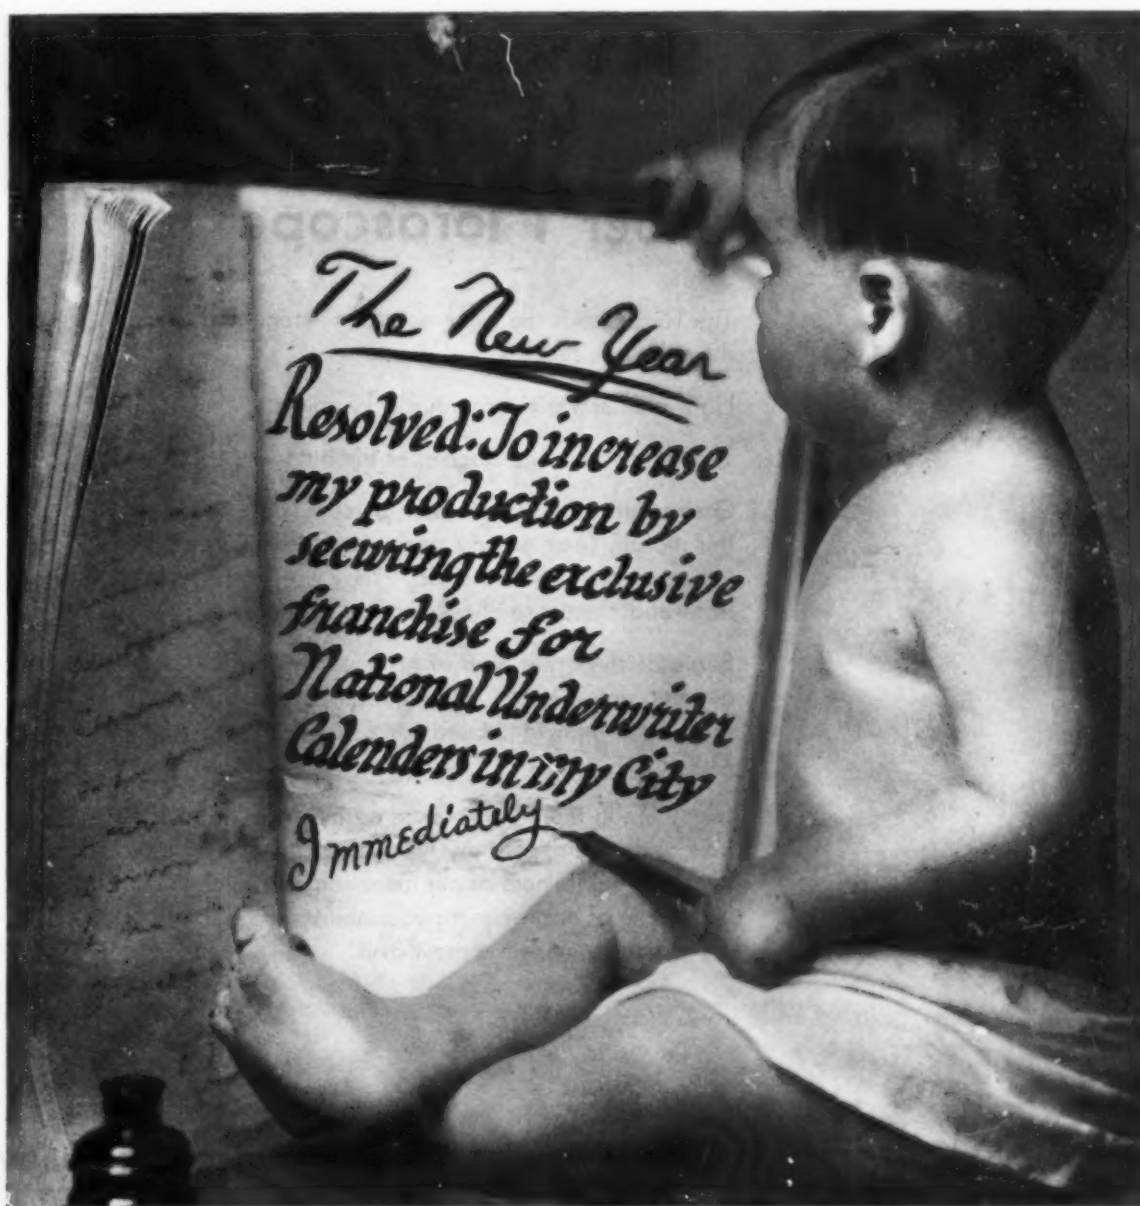 The New Year
Resolved: To increase
my production by
securing the exclusive
franchise for
National Underwriter
Calenders in my City
Immediately